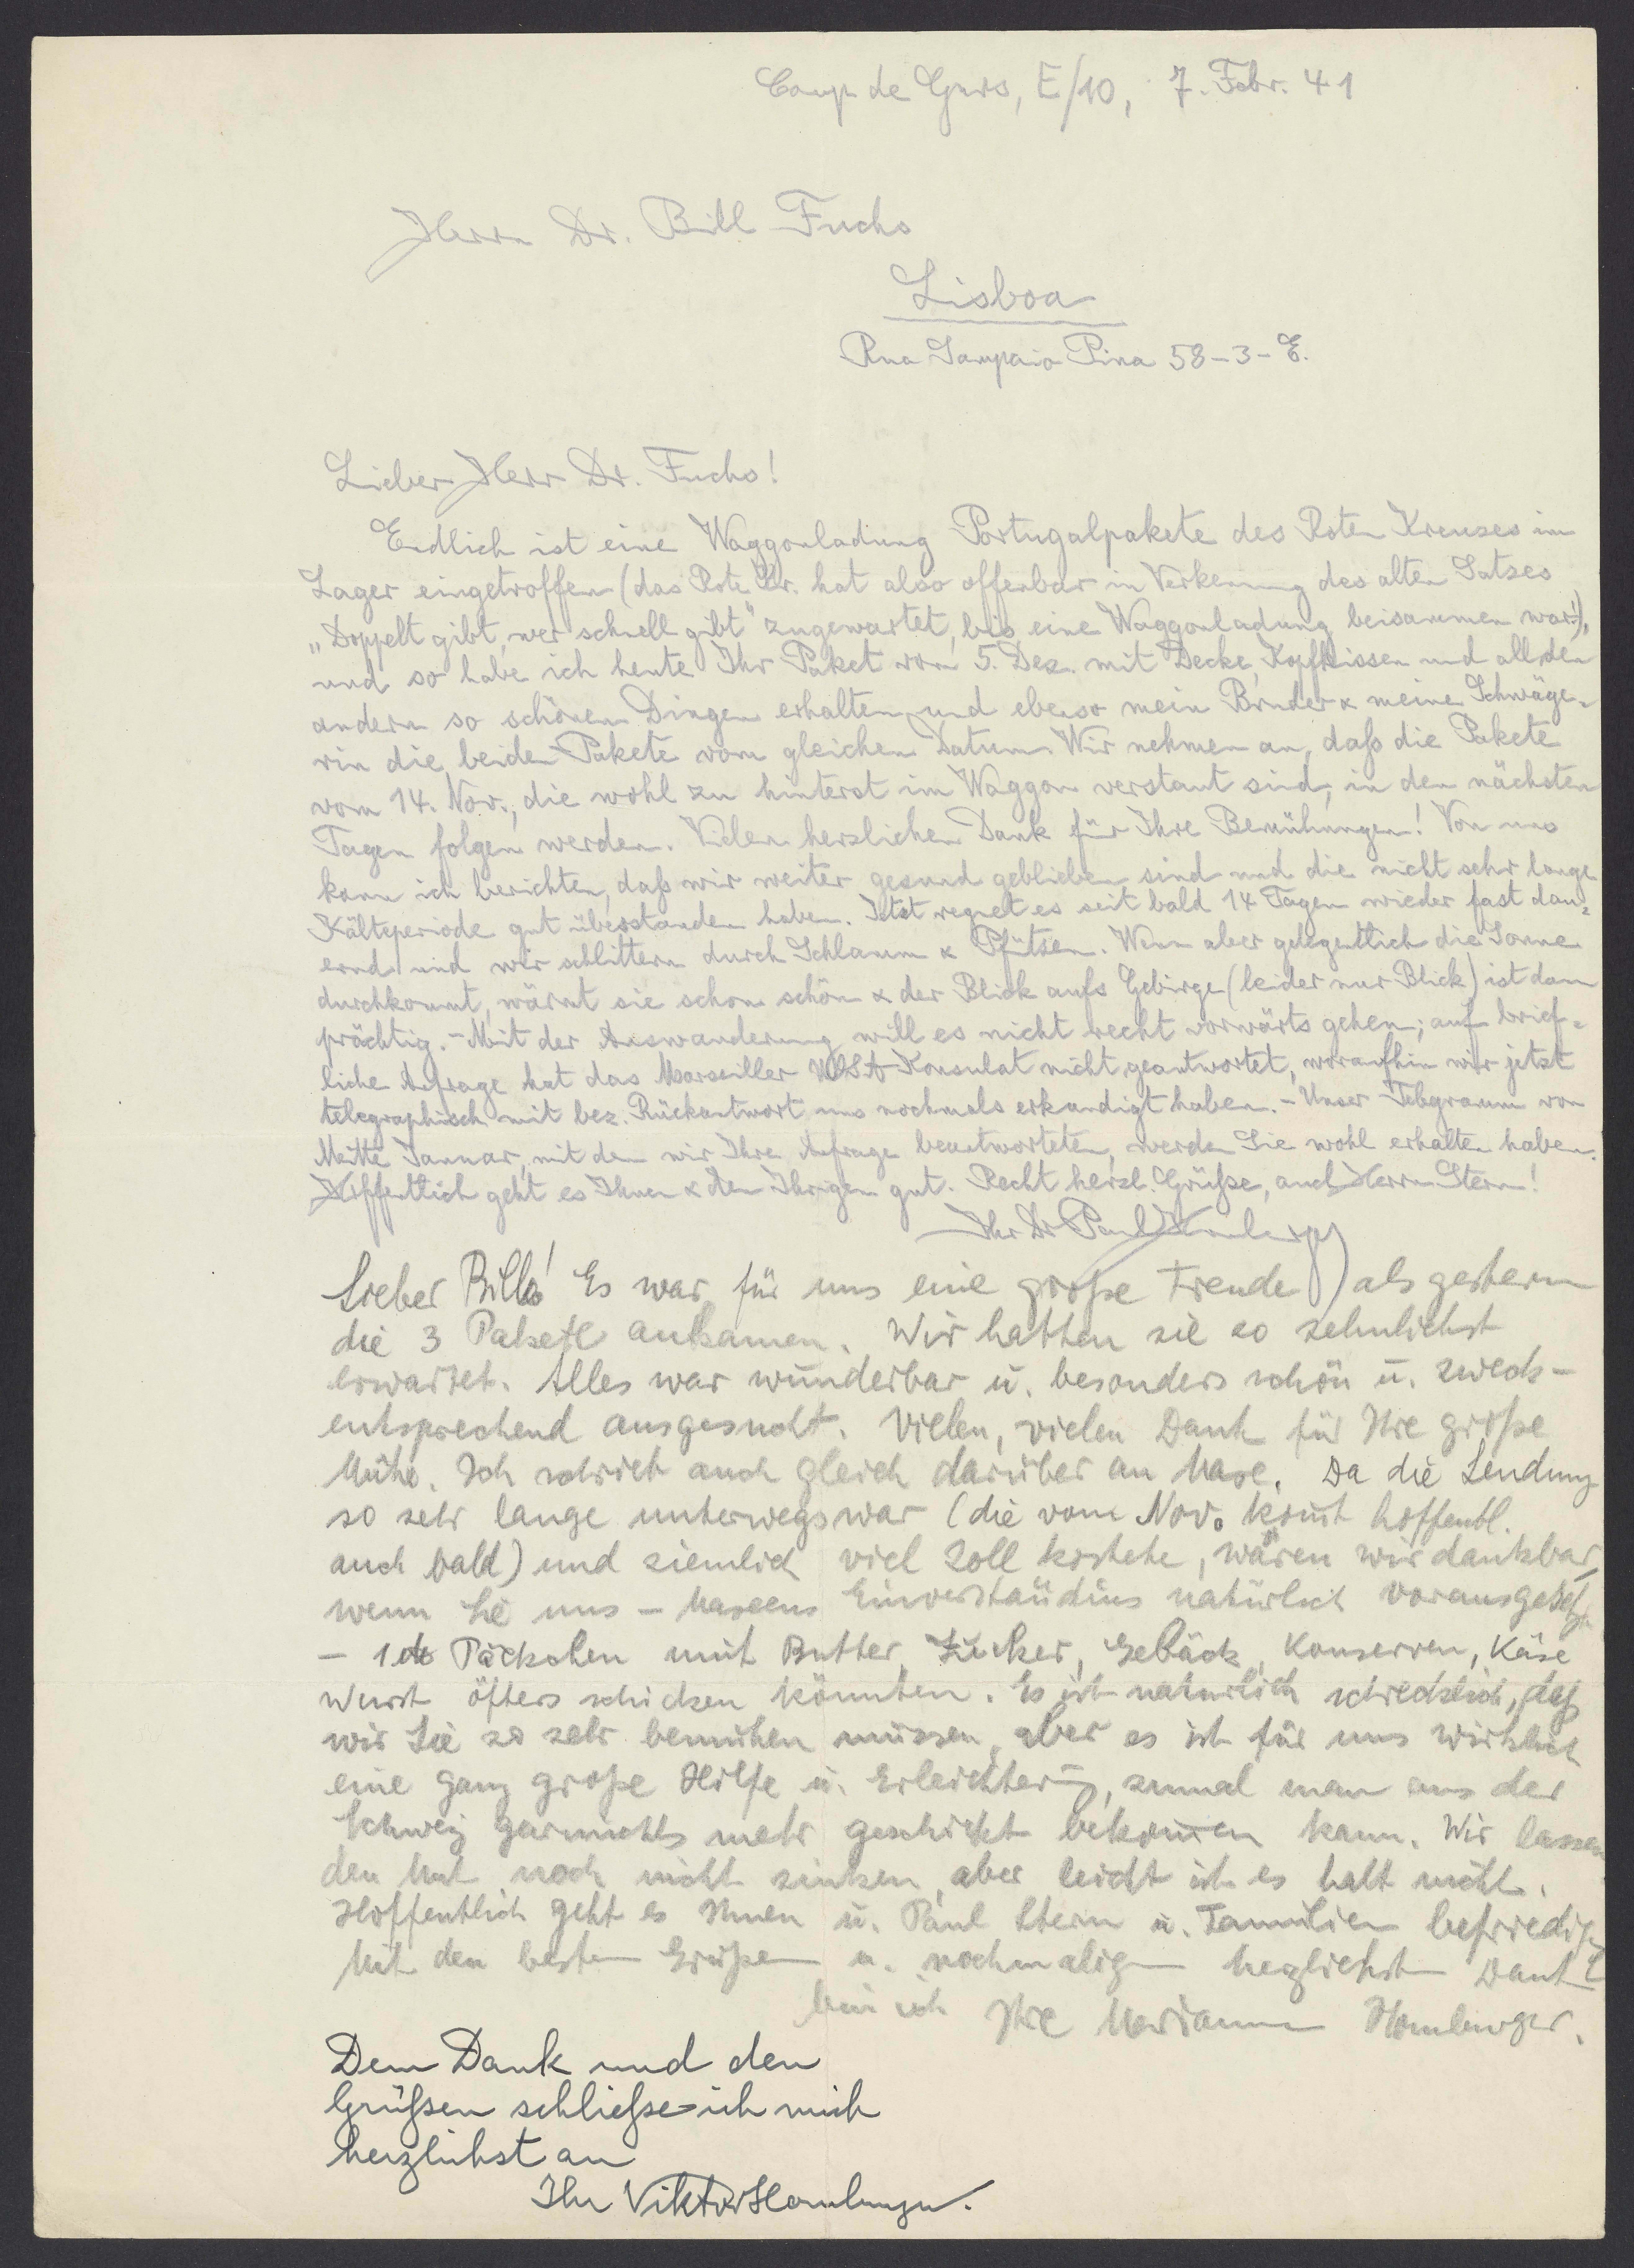 Camp de Gurs, E/10, 7. Febr. 41
Herrn Dr. Bill Fuchs
Lisboa
Rua Sampaio Pina 58-3-E.
Lieber Herr Dr. Fuchs!
Endlich ist eine Waggonladung Portugalpakete des Roten Kreuzes im
Lager eingetroffen (das Rote Kr. hat also offenbar in Verkennung des alten Satzes
„Doppelt gibt, wer schnell gibt" zugewartet, bis eine Waggonladung beisammen war!),
und so habe ich heute Ihr Paket vom 5. Dez. mit Decke, Kopfkissen und all den
andern so schönen Dingen erhalten und ebenso mein Bruder & meine Schwäge-
rin die beiden Pakete vom gleichen Datum. Wir nehmen an, daß die Pakete
vom 14. Nov., die wohl zu hinterst im Waggon verstaut sind, in den nächsten
Tagen folgen werden. Vielen herzlichen Dank für Ihre Bemühungen! Von uns
kann ich berichten, daß wir weiter gesund geblieben sind und die nicht sehr lange
Kälteperiode gut überstanden haben. Jetzt regnet es seit bald 14 Tagen wieder fast dau-
ernd und wir schlittern durch Schlamm & Pfützen. Wenn aber gelegentlich die Sonne
durchkommt, wärmt sie schon schön & der Blick aufs Gebirge (leider nur Blick) ist dann
prächtig. - Mit der Auswanderung will es nicht recht vorwärts gehen; auf brief-
liche Anfrage hat das Marseiller USA-Konsulat nicht geantwortet, woraufhin wir jetzt
telegraphisch mit bez. Rückantwort uns nochmals erkundigt haben. - Unser Telegramm von
Mitte Januar, mit dem wir Ihre Anfrage beantworteten, werden Sie wohl erhalten haben.
Hoffentlich geht es Ihnen & den Ihrigen gut. Recht herzl. Grüße, auch Herrn Stern!
Ihr Dr Paul Homburger
Lieber Bill! Es war für uns eine große Freude, als gestern
die 3 Pakete ankamen. Wir hatten sie so sehnlichst
erwartet. Alles war wunderbar u. besonders schön u. zweck-
entsprechend ausgesucht. Vielen, vielen Dank für Ihre große
Mühe. Ich schrieb auch gleich darüber an Mase. Da die Sendung
so sehr lange unterwegs war (die vom Nov. kommt hoffentl.
auch bald) und ziemlich viel Zoll kostete, wären wir dankbar,
wenn Sie uns - Masens Einverständnis natürlich vorausgesetzt
- Päckchen mit Butter, Zucker, Gebäck, Konserven, Käse
Wurst öfters schicken könnten. Es ist natürlich schrecklich, daß
wir Sie so sehr bemühen müssen, aber es ist für uns wirklich
eine ganz große Hilfe u. Erleichterung, zumal man aus der
Schweiz garnichts mehr geschickt bekommen kann. Wir lassen
den Mut noch nicht sinken, aber leicht ist es halt nicht.
Hoffentlich geht es Ihnen u. Paul Stern u. Familien befriedigend
Mit den besten Grüßen u. nochmaligem herzlichsten Dank
bin ich Ihre Marianne Homburger.
Dem Dank und den
Grüßen schließe ich mich
herzlichst an
Ihr Viktor Homburger.